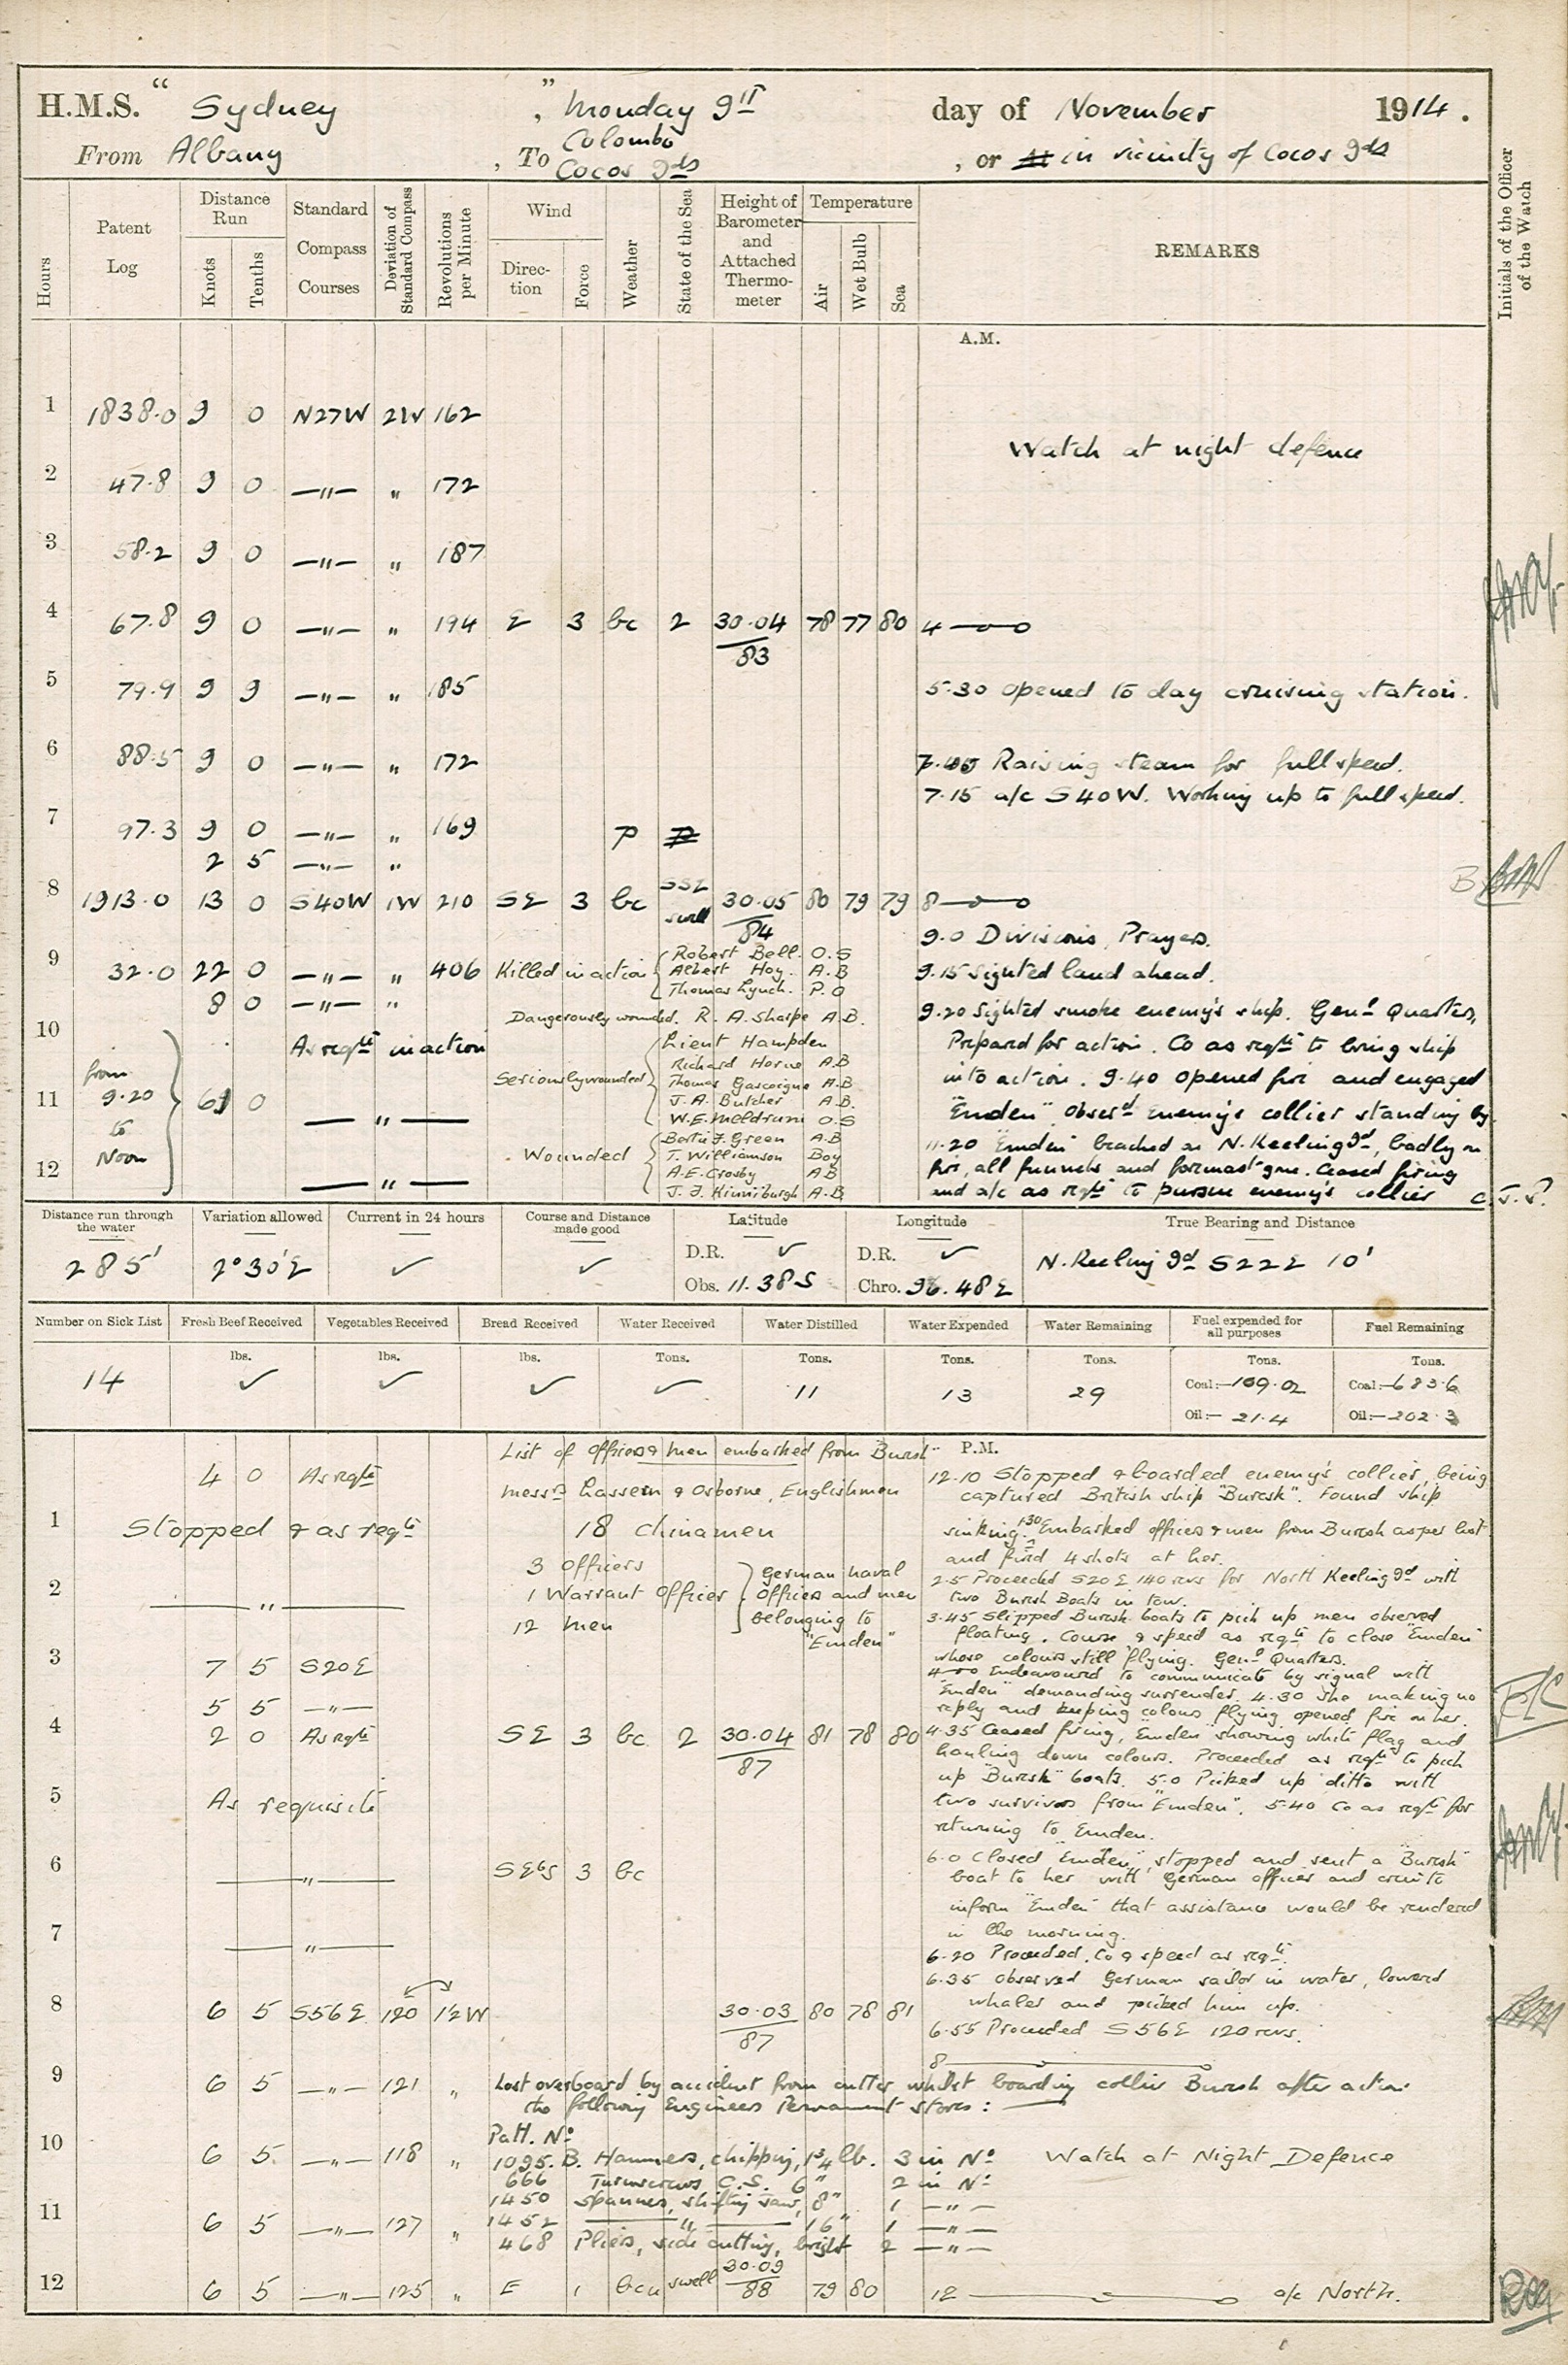 H.M.S. " Sydney ", Monday 9th day of November 1914.
From Albany , To Colombo Cocos Ids , or in vicinity of Cocos Ids
Hours
Patent Log
Distance Run
Knots
Tenths
Standard Compass Courses
Deviation of Standard Compass
Revolutions per Minute
Wind
Direction
Force
Weather
State of the Sea
Height of Barometer and Attached Thermometer
Temperature
Air
Wet Bulb
Sea
REMARKS
Initials of the Officer of the Watch
A.M.
1 1838.0 9 0 N27W 2W 162
Watch at night defence
2 47.8 9 0 —"— " 172
3 58.2 9 0 —"— " 187
4 67.8 9 0 —"— " 194 E 3 bc 2 30.04/83 78 77 80 4
5 79.9 9 9 —"— " 185 5.30 opened to day cruising station.
6 88.5 9 0 —"— " 172 Raising steam for full speed.
7.15 a/c S40W. Working up to full speed.
7 97.3 9 0 —"— " 169 p
2 5 —"— "
8 1913.0 13 0 S40W 1W 210 SE 3 bc SSE swell 30.05/84 80 79 79 8
9.0 Divisions, Prayers.
9 32.0 22 0 —"— " 406 Killed in action { Robert Bell. O.S
Albert Hoy. A.B
Thomas Lynch. P.O
9.15 sighted land ahead.
8 0 —"— "
Dangerously wounded. R. A. Sharpe A.B.
9.20 Sighted smoke enemy's ship. Genl Quarters,
10 As reqte in action
Prepared for action. Co as reqte to bring ship
into action. 9.40 opened fire and engaged
Seriously wounded { Lieut Hampden
Richard Horne A.B
Thomas Gascoigne A.B
J.A. Butcher A.B.
W.E. Meldrum O.S
from 9.20 to Noon
11 0 —"—
"Emden". Obserd enemy's collier standing by.
Wounded { Bertie J. Green A.B
T. Williamson Boy
A.E. Crosby AB
J. J. Kinniburgh A.B
11.20 "Emden" beached on N. Keeling Id, badly on
fire, all funnels and foremast gone. Ceased firing
12 —"—
and a/c as reqte to pursue enemy's collier C.J.P.
Distance run through the water
285'
Variation allowed
2°30'E
Current in 24 hours
✓
Course and Distance made good
✓
Latitude
D.R. ✓
Obs. 11.38 S
Longitude
D.R. ✓
Chro. 96.48 E
True Bearing and Distance
N. Keeling Id S22E 10'
Number on Sick List
14
Fresh Beef Received
lbs.
✓
Vegetables Received
lbs.
✓
Bread Received
lbs.
✓
Water Received
Tons.
✓
Water Distilled
Tons.
11
Water Expended
Tons.
13
Water Remaining
Tons.
29
Fuel expended for all purposes
Tons.
Coal:— 109.02
Oil:— 21.4
Fuel Remaining
Tons.
Coal:— 683.6
Oil:— 202.3
P.M.
List of officers & men embarked from "Buresk"
4 0 As reqte
Messrs Lassern & Osborne, Englishmen
12.10 Stopped & boarded enemy's collier, being
captured British ship "Buresk". Found ship
1 Stopped & as reqte
18 Chinamen
sinking. 1.30 Embarked officers & men from Buresk as per list
and fired 4 shots at her.
3 Officers
1 Warrant Officer
12 men
German naval
officers and men
belonging to
"Emden"
2 —"—
2.5 Proceeded S20E 140 revs for North Keeling Id with
two Buresk Boats in tow.
3.45 Slipped Buresk boats to pick up men observed
floating. Course & speed as reqte to close "Emden"
whose colours still flying. Genl Quarters.
3 7 5 S20E
Endeavoured to communicate by signal with
"Emden" demanding surrender. 4.30 she making no
5 5 —"—
reply and keeping colours flying opened fire on her.
4 2 0 As reqte SE 3 bc 2 30.04/87 81 78 80
4.35 Ceased firing, "Emden" showing white flag and
hauling down colours. Proceeded as reqte to pick
up "Buresk" boats. 5.0 Picked up ditto with
5 As requisite
two survivors from "Emden". 5.40 Co as reqte for
returning to Emden.
6 —"— SEbS 3 bc
6.0 Closed "Emden", stopped and sent a "Buresk"
boat to her with German officer and crew to
inform "Emden" that assistance would be rendered
in the morning.
7 —"—
6.20 Proceeded. Co & speed as reqte.
6.35 observed German sailor in water, lowered
whaler and picked him up.
8 6 5 S56E 120 1½W 30.03/87 80 78 81
6.55 Proceeded S56E 120 revs.
8
9 6 5 —"— 121 "
Lost overboard by accident from cutter whilst boarding collier Buresk after action
the following Engineers Permanent stores:
Patt. No
10 6 5 —"— 118 "
1095. B. Hammers, chipping, 1¾ lb. 3 in No
Watch at Night Defence
666 Turnscrews C.S. 6" 2 in No
1450 Spanner, shifting 8" 1 —"—
11 6 5 —"— 127 "
1452 —"— 16" 1 —"—
468 Pliers, side cutting, bright 2 —"—
12 6 5 —"— 125 " E 1 bcu swell 30.09/88 79 80 12 a/c North.